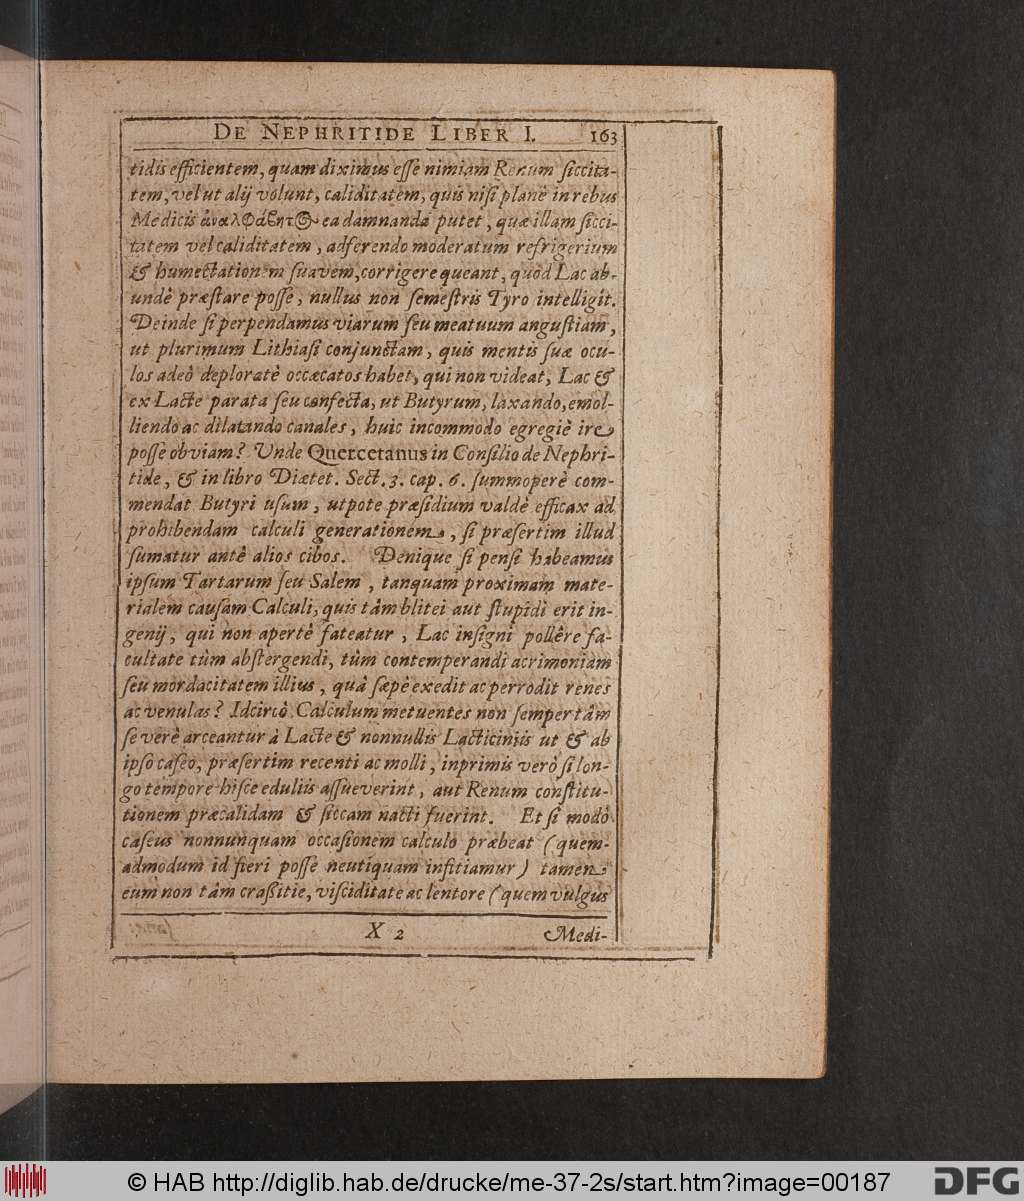 DE NEPHRITIDE LIBER I. 163
tidis efficientem, quam diximus esse nimiam Renum siccita-
tem, vel ut alij volunt, caliditatem, quis nisi planè in rebus
Medicis ἀναλφάβητος ea damnanda putet, quæ illam sicci-
tatem vel caliditatem, adferendo moderatum refrigerium
& humectationem suavem, corrigere queant, quod Lac ab-
undè præstare posse, nullus non semestris Tyro intelligit.
Deinde si perpendamus viarum seu meatuum angustiam,
ut plurimum Lithiasi conjunctam, quis mentis suæ ocu-
los adeò deploratè occæcatos habet, qui non videat, Lac &
ex Lacte parata seu confecta, ut Butyrum, laxando, emol-
liendo ac dilatando canales, huic incommodo egregiè ire
posse obviam? Unde Quercetanus in Consilio de Nephri-
tide, & in libro Diætet. Sect. 3. cap. 6. summoperè com-
mendat Butyri usum, utpote præsidium valdè efficax ad
prohibendam calculi generationem, si præsertim illud
sumatur antè alios cibos. Denique si pensi habeamus
ipsum Tartarum seu Salem, tanquam proximam mate-
rialem causam Calculi, quis tàm blitei aut stupidi erit in-
genij, qui non apertè fateatur, Lac insigni pollêre fa-
cultate tùm abstergendi, tùm contemperandi acrimoniam
seu mordacitatem illius, quâ sæpè exedit ac perrodit renes
ac venulas? Idcircò Calculum metuentes non semper tàm
severè arceantur à Lacte & nonnullis Lacticiniis ut & ab
ipso caseo, præsertim recenti ac molli, inprimis verò si lon-
go tempore hisce eduliis assueverint, aut Renum constitu-
tionem præcalidam & siccam nacti fuerint. Et si modò
caseus nonnunquam occasionem calculo præbeat (quem-
admodum id fieri posse neutiquam infitiamur) tamen
eum non tàm crassitie, visciditate ac lentore (quem vulgus
X 2 Medi-
© HAB http://diglib.hab.de/drucke/me-37-2s/start.htm?image=00187
DFG